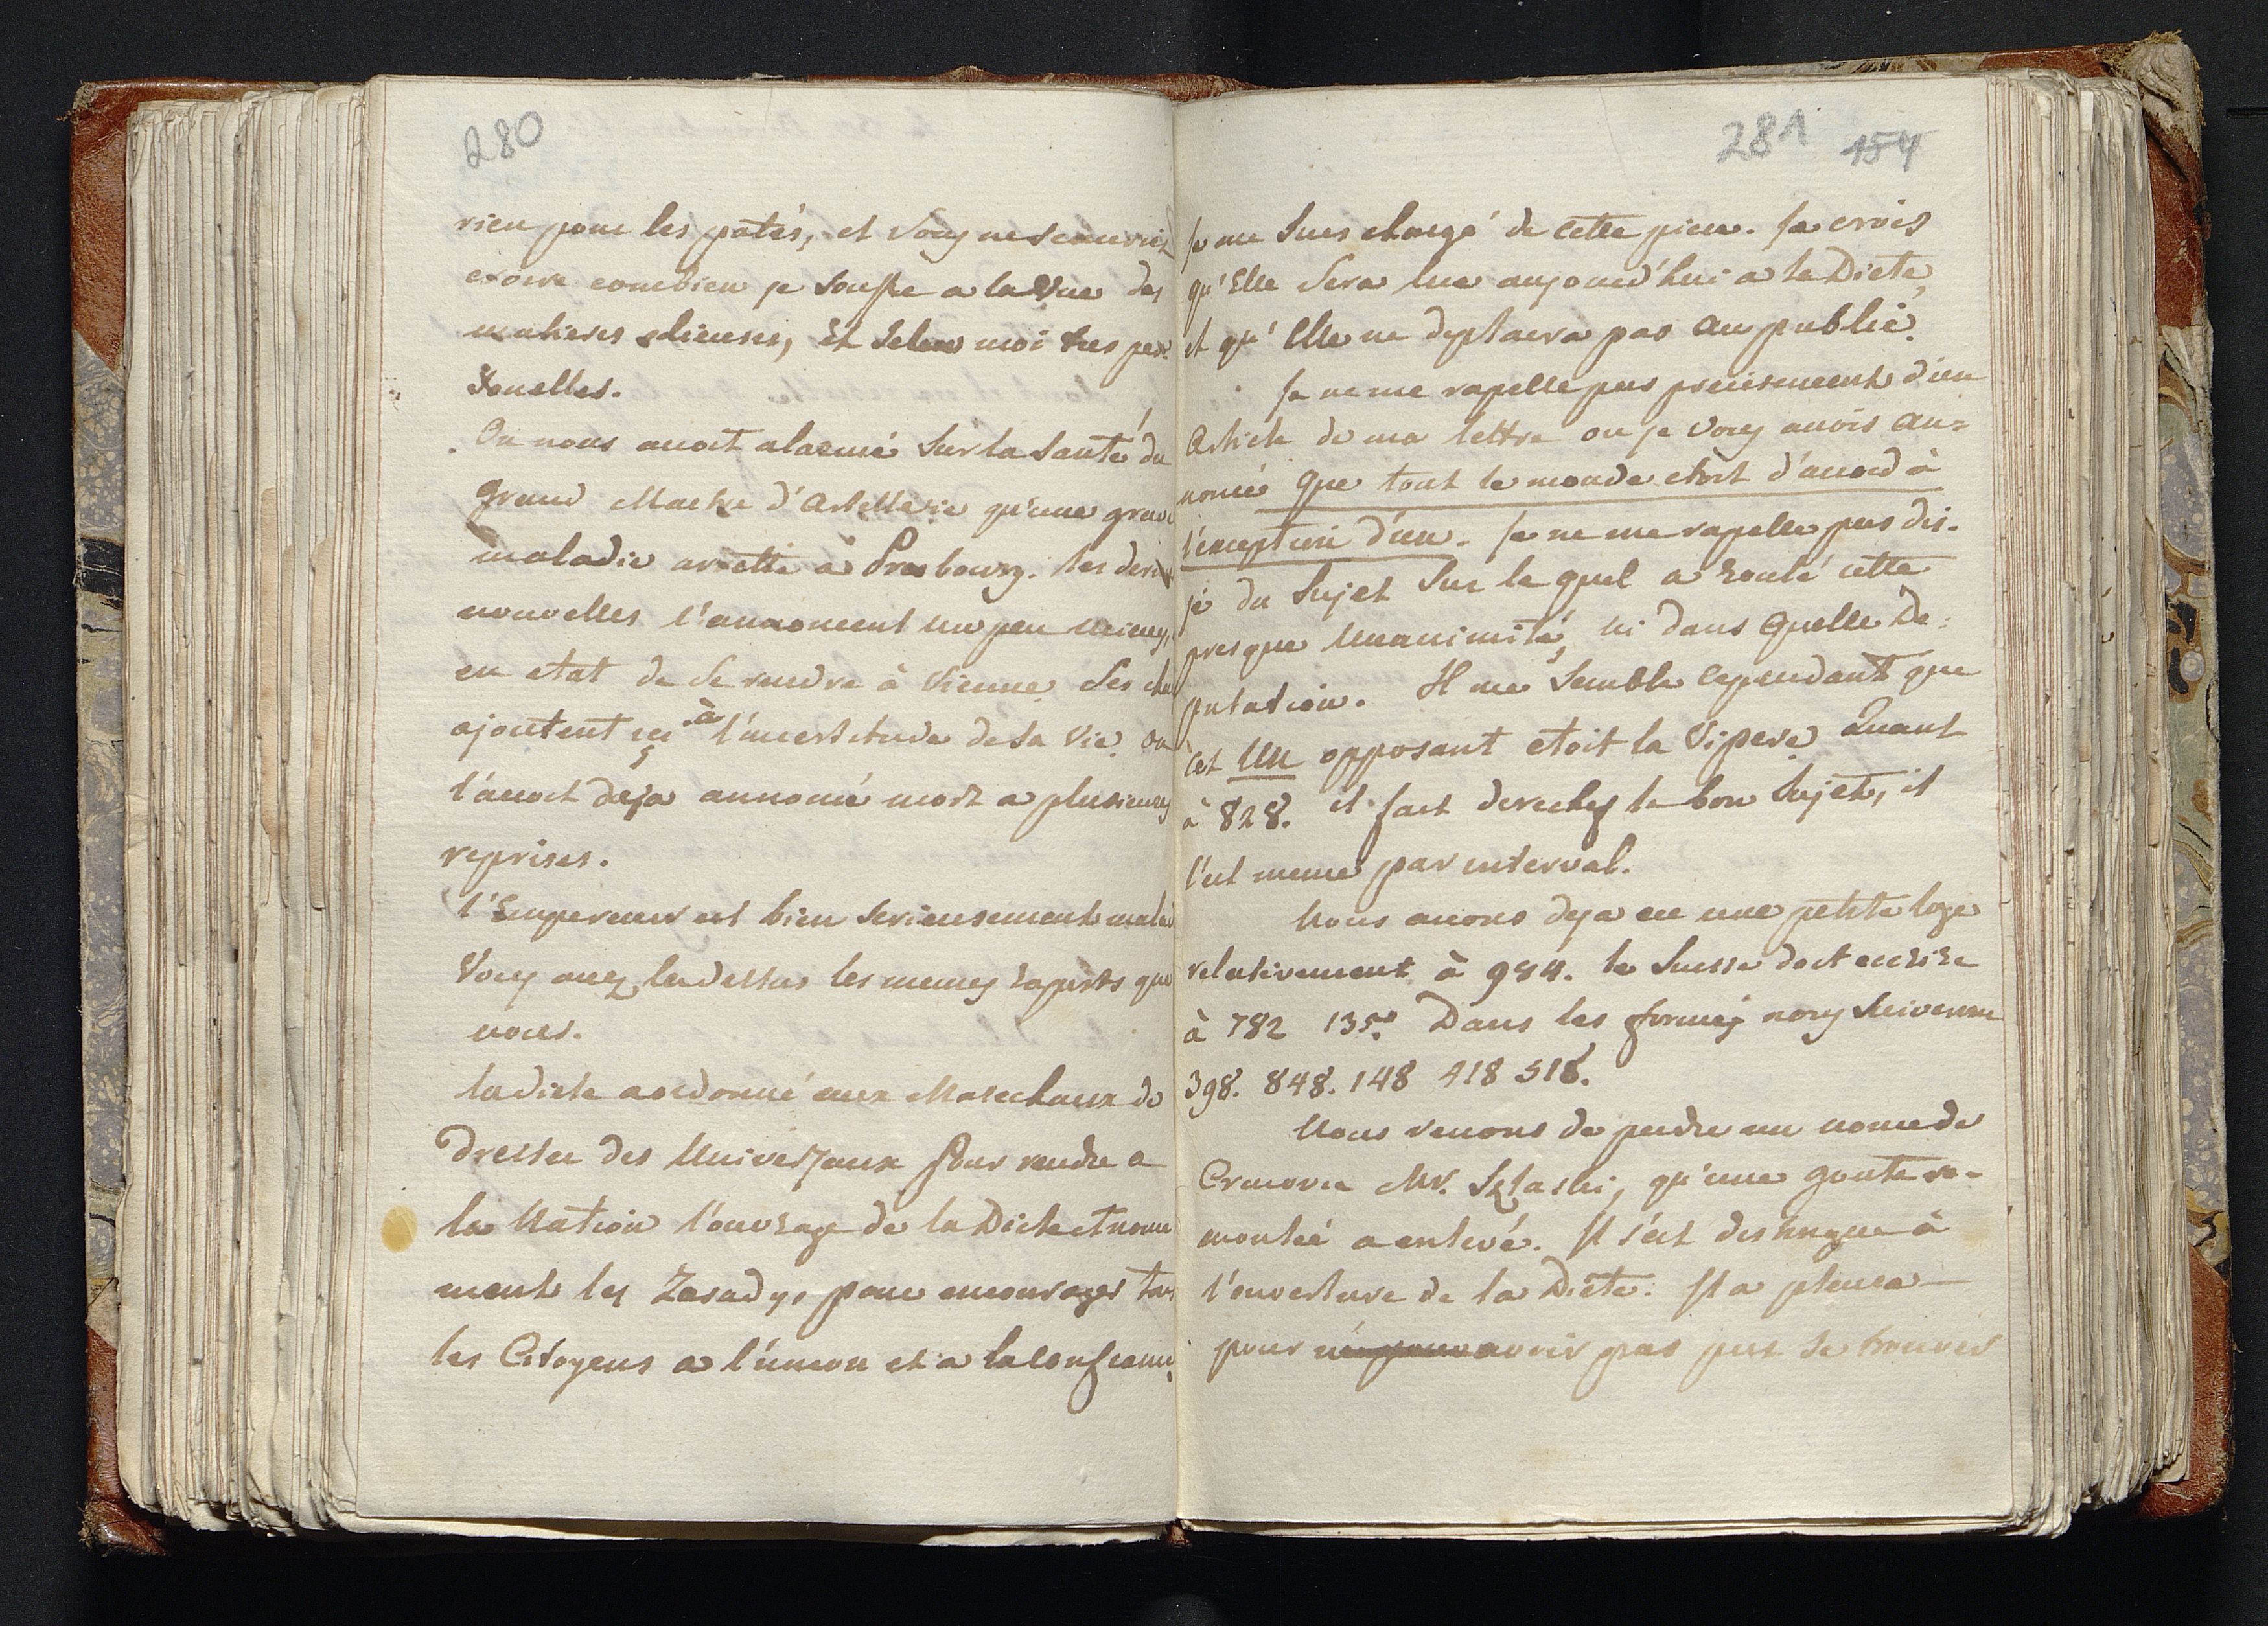 280
rien pour les patés, et Vous ne Scauriez
croire combien je souffre a la Vue des
matieres odieuses, Et Selon moi tres per-
sonelles.
On nous avoit alarmé Sur la Santé du
grand Maitre d'Artillerie qu'une grave
maladie arrette à Presbourg. les
nouvelles l'annoncent un peu mieux,
en etat de Se rendre à Vienne. Ses
ajoutent ici à l'incertitude de sa Vie. on
l'avoit deja annoncé mort a plusieurs
reprises.
l'Empereur est bien Serieusement
Vous avez la dessus les memes raports que
nous.
la diete a ordonné aux Marechaux de
Dresser des Universaux pour rendre a
la Nation l'ouvrage de la Diete et
ment les Zasady, pour encourager tous
les Citoyens a l'union et a la confiance.
281 154
Je me Suis chargé de cette piece. Je crois
qu'Elle Sera lue aujourd'hui a la Diete,
et qu'Elle ne deplaira pas au public.
Je ne me rapelle pas precisement d'un
Article de ma lettre ou je Vous avois an=
noncé que tout le monde etoit d'accord à
l'exception d'un. Je ne me rapelle pas dis-
je du Sujet Sur le quel a roulé cette
presque Unanimité, ni dans quelle De=
putation. Il me Semble cependant que
cet Un opposant etoit la Vipere. Quant
à 828. il fait derechef le bon Sujet, il
l'est meme par interval.
Nous avons deja eu une petite loge
relativement à 984. le Suisse doit ecrire
à 782 135. Dans les formes nous
398. 848. 148 418 518.
Nous venons de perdre un nonce de
Cracovie Mr. Szlaski, qu'une goute re-
montée a enlevé. Il s'est distingué à
l'ouverture de la Diete. Il a pleuré
pour avoir pas pu se trouver